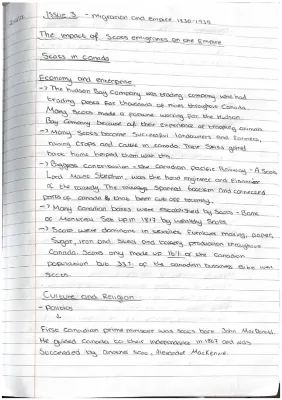 Issue 3 - Migration and Empire 1830-1939
The impact of Scots emigrants on the Empire
Scots in Canada
Economy and enterprise
-> The Hudson Bay Company was trading company who had
trading posts for thousands of miles throughout Canada.
Many Scots made a fortune working for the Hudson
Bay Company because of their experience of trapping animals
-> Many Scots became successful landowners and farmers,
raising crops and cattle in Canada. Their Scots
back home helped them with this.
-> Biggest contribution - the Canadian Pacific Railway - A Scot
Lord Mount Stephen, was the head engineer and financier
of the railway. The railway spanned and connected
parts of Canada that been cut off recently.
-> Many Canadian banks were established by Scots - Bank
of Montreal set up in 1817 by wealthy Scots.
-> Scots were dominant in textiles, furniture making, paper,
Sugar, iron and steel and production throughout
Canada. Scots only made up 16% of the Canadian
population but 33% of the Canadian business elite were
Scots.
Culture and Religion
- Politics
↓
First Canadian prime minister was Scots born John MacDonald.
He guided Canada to their independence in 1867 and was
succeeded by another Scot, Alexander Mackenzie.